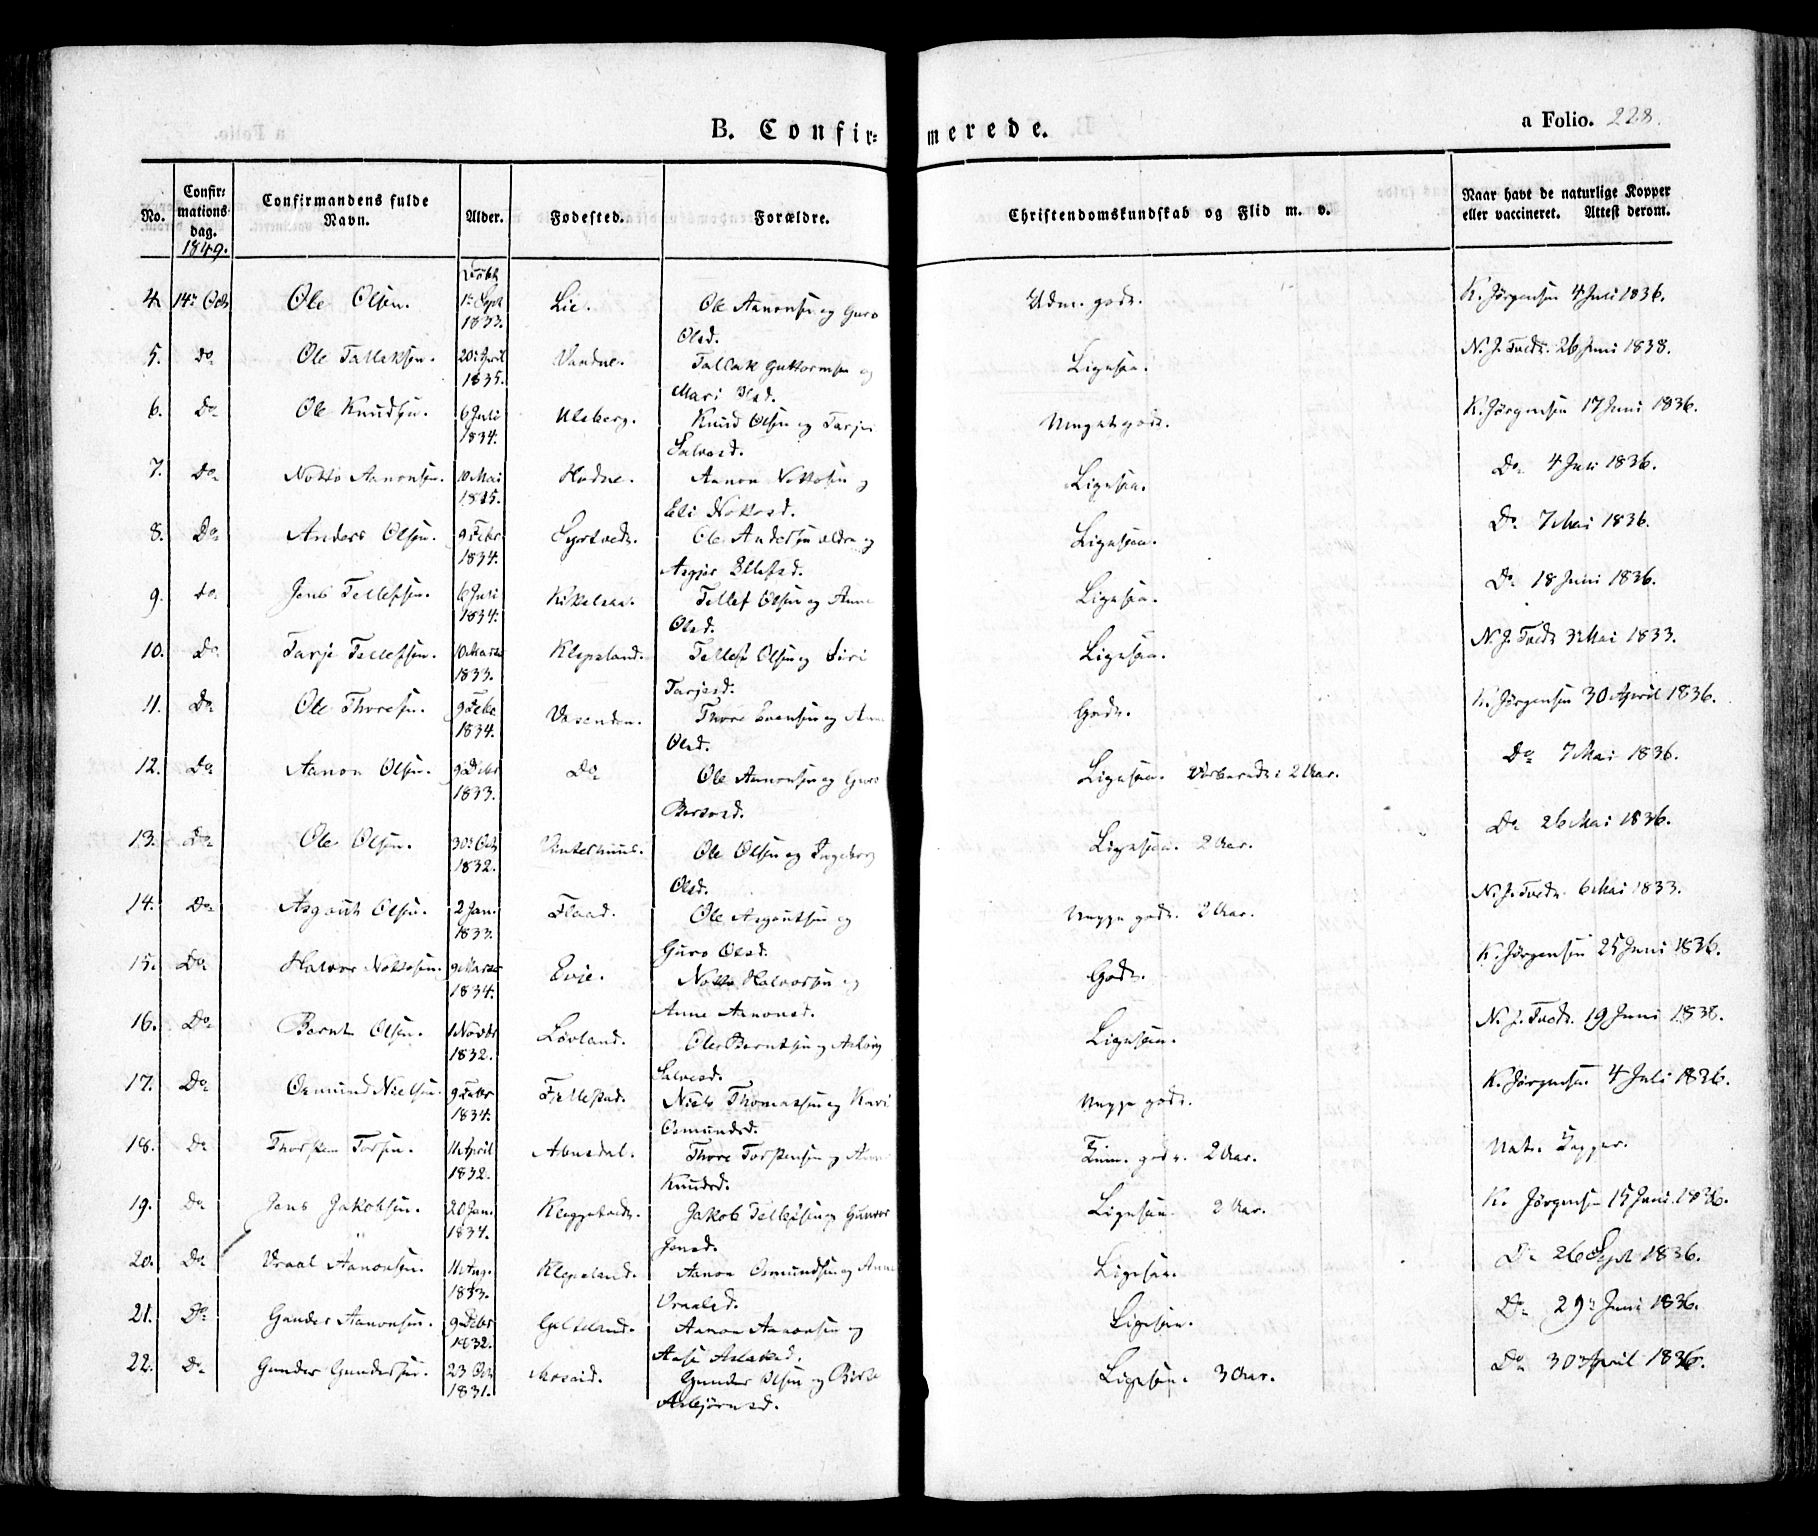 B. Confir=merede.
a Folio. 228.
No. Confir=mations dag. 1849. Confirmandens fulde Navn. Alder. Fødested. Forældre. Christendomskundskab og Flid m. v. Naar havt de naturlige Kopper eller vaccineret. Attest derom.
4. 14de Octb Ole Olsen. Født 1te Sept 1833. Lie. Ole Aanonsen og Guro Olsd. Udm. godt. K. Jørgensen 4 Juli 1836.
5. Do Ole Tallaksen. 20de April 1835. Vandne. Tallak Guttormsen og Mari Olsd. Ligesaa. N. J. Tvedt. 26 Juni 1838.
6. Do Ole Knudsen. 6 Juli 1834. Ulsberg. Knud Olsen og Tarjer Salvesd. Meget godt. K. Jørgensen 17 Juni 1836.
7. Do Notto Aanonsen. 10 Mai 1835. Hodne. Aanon Nottosen og Eli Nottosd. Ligesaa. Do 4 Juli 1836.
8. Do Anders Olsen. 9 Febr 1834. Syrtvedt. Ole Andersen ældre og Asgjer Ellefsd. Ligesaa. Do 7 Mai 1836.
9. do Jens Tellefsen. 6 Juli 1834. Kikelsaa. Tellef Olsen og Anne Olsd. Ligesaa. Do 18 Juni 1836.
10. Do Tarje Tellefsen. 10 Marts 1833. Klepeland. Tellef Olsen og Siri Tarjesd. Ligesaa. N. J. Tvedt 31 Mai 1833.
11. Do Ole Thoresen. 9 Febr 1834. Vasenden. Thore Evensen og Anne Olsd. Godt. K. Jørgensen 30 April 1836.
12. Do Aanon Olsen. 9 Debr 1833. Do Ole Aanonsen og Guro Berthesd. Ligesaa. Forberedt i 2 Aar. Do 7 Mai 1836.
13. Do Ole Olsen. 30te Octb 1832. Vintershuus. Ole Olsen og Ingeborg Olsd. Ligesaa. 2 Aar. Do 26 Mai 1836.
14. Do Asgout Olsen. 2 Jan. 1833. Flaad. Ole Asgoutsen og Guro Olsd. Megge godt. 2 Aar. N. J. Tvedt. 6 Mai 1833.
15. Do Halvor Nottosen. 9 Marts 1834. Evje. Notto Halvorsen og Anne Aanonsd. Godt. K. Jørgensen 25 Juni 1836.
16. Do Bernt Olsen. 1 Novbr 1832. Løvland. Ole Berntsen og Aslaug Salvesd. Ligesaa. N. J. Tvedt. 19 Juni 1838.
17. Do Osmund Nielsen. 9 Febr 1834. Fjellestad. Niels Thomassen og Kari Osmundsd. Megge godt. K. Jørgensen 4 Juli 1836.
18. Do Thorsten Torsen. 11 April 1832. Abusdal. Thore Torstensen og Anne Knudsd. Tem. godt. 2 Aar. Nat. Kopper.
19. Do Jens Jakobsen. 20 Jan. 1834. Jakob Tellefsen og Gunvor Jensd. Ligesaa. 2 Aar. K. Jørgensen 15 Juni 1836.
20. Do Vraal Aanonsen. 11 Aug. 1833. Klepeland. Aanon Osmundsen og Anne Vraalsd. Ligesaa. Do 26 Sept 1836.
21. Do Gunder Aanonsen. 9 Debr 1832. Aanon Aanonsen og Aase Aslaksd. Ligesaa. Do 29de Juni 1836.
22. Do Gunder Gundersen. 23 Oct 1831. Gunder Olsen og Birte Asbjørnsd. Ligesaa. 3 Aar. Do 30 April 1836.